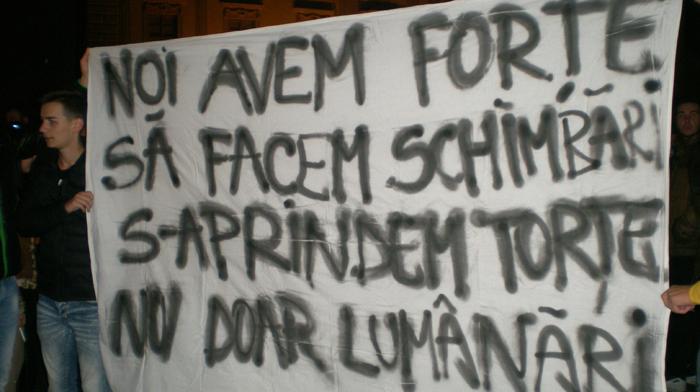 NOI AVEM FORȚE
SĂ FACEM SCHIMBĂRI
S-APRINDEM TORȚE
NU DOAR LUMÂNĂRI